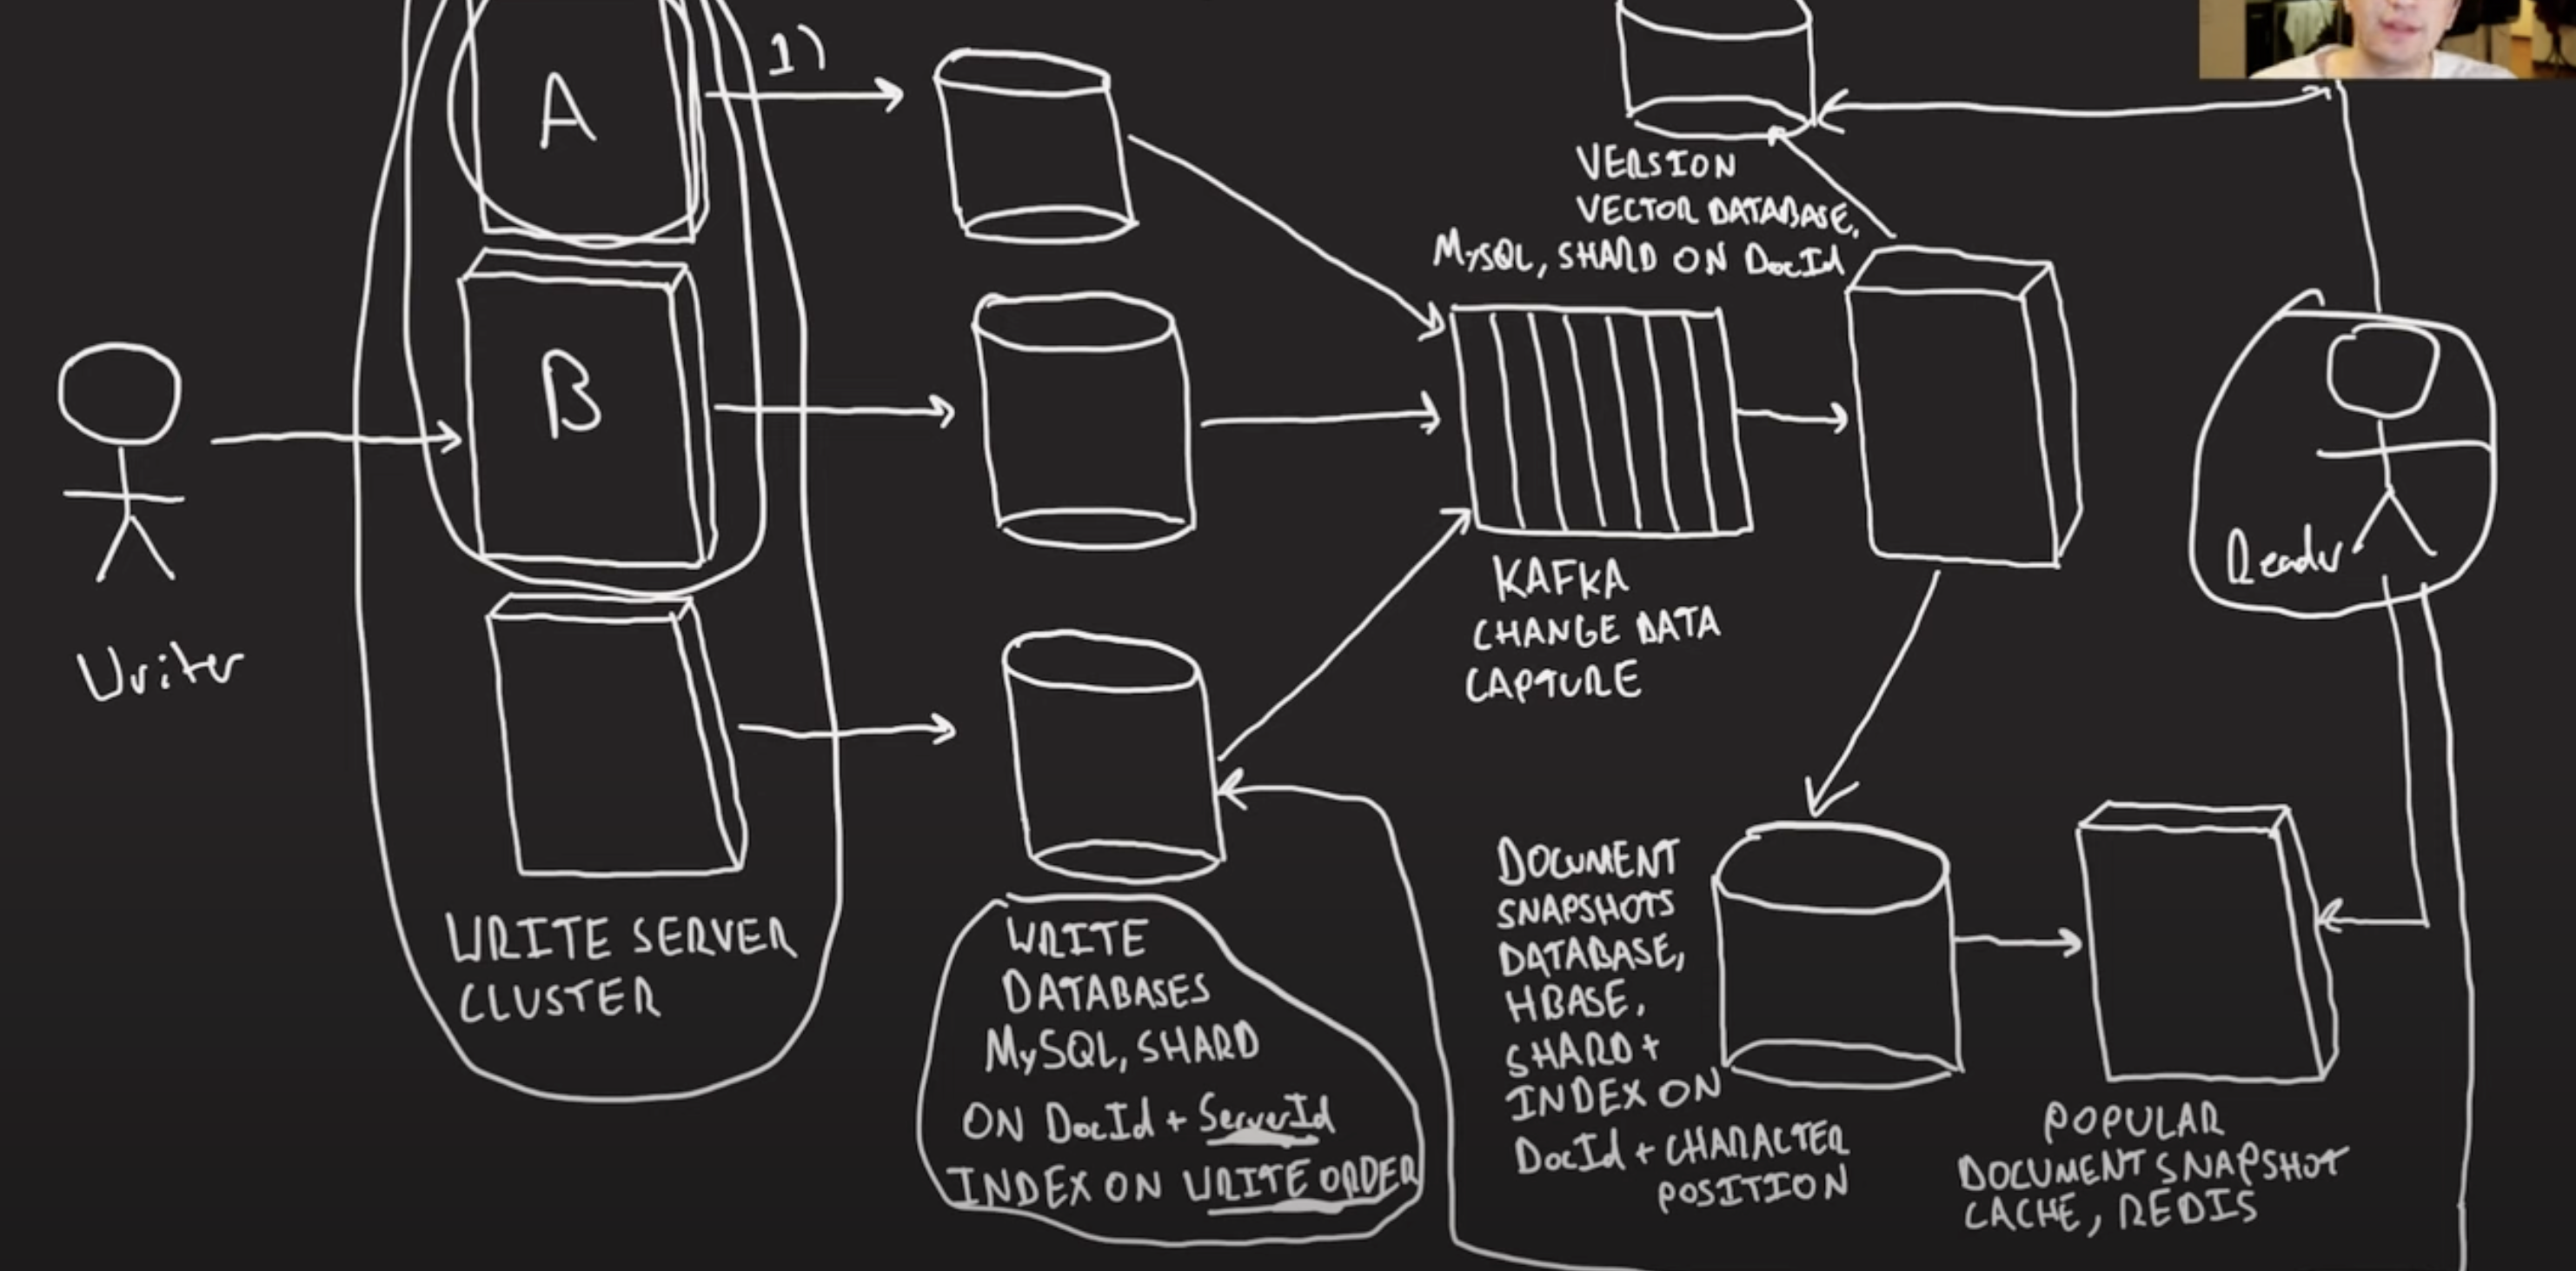 A
1)
B
Writer
WRITE SERVER
CLUSTER
WRITE
DATABASES
MySQL, SHARD
ON DocId + ServerId
INDEX ON WRITE ORDER
VERSION
VECTOR DATABASE,
MySQL, SHARD ON DocId
KAFKA
CHANGE DATA
CAPTURE
Reader
DOCUMENT
SNAPSHOTS
DATABASE,
HBASE,
SHARD +
INDEX ON
DocId + CHARACTER
POSITION
POPULAR
DOCUMENT SNAPSHOT
CACHE, REDIS